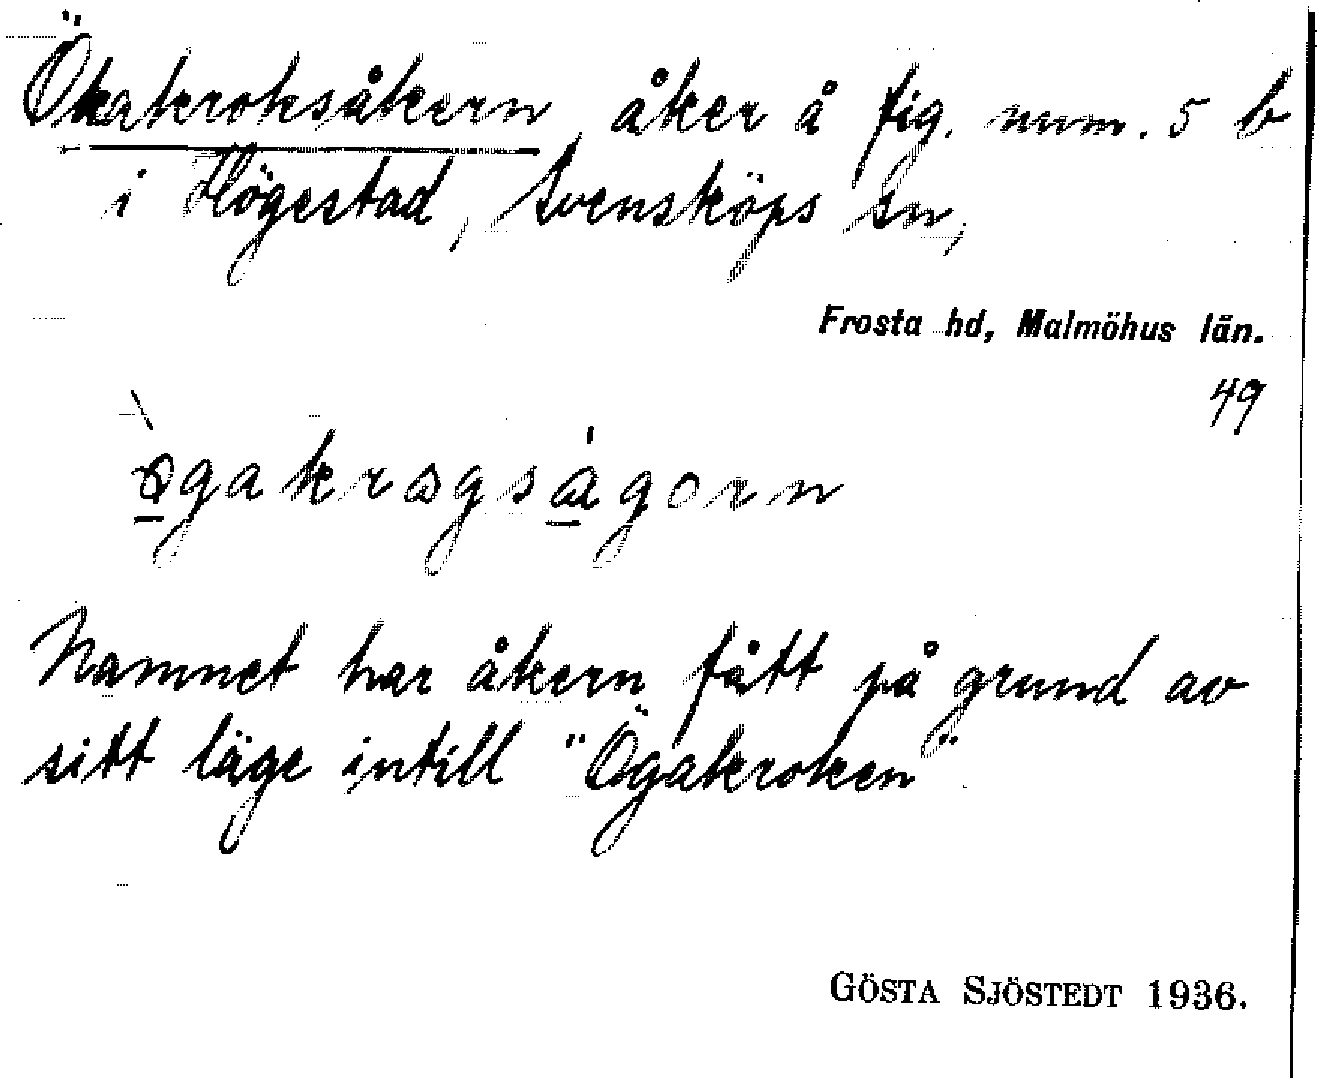 Ökakroksåkern, åker å fig. num. 5 b
i Högestad, Svensköps sn,
Frosta hd, Malmöhus län.
49
ø̀gakrogsågorn
Namnet har åkern fått på grund av
sitt läge intill "Ögakroken"
GÖSTA SJÖSTEDT 1936.